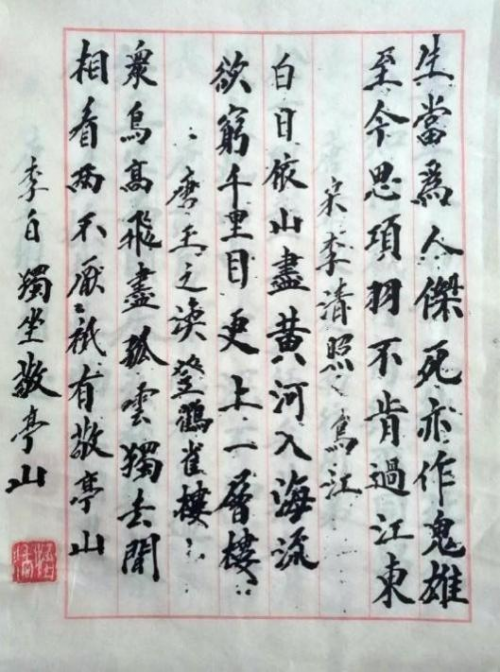 生當爲人傑死亦作鬼雄
至今思項羽不肯過江東
宋李清照 烏江
白日依山盡黃河入海流
欲窮千里目更上一層樓
唐王之渙登鸛雀樓
衆鳥高飛盡孤雲獨去閒
相看兩不厭祇有敬亭山
李白獨坐敬亭山